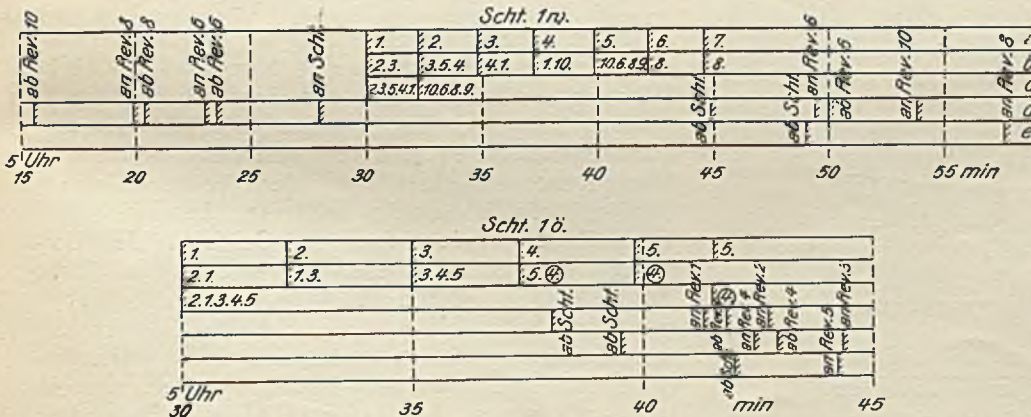 Scht. 1w.
ab Rev. 10
an Rev. 8
ab Rev. 8
an Rev. 6
ab Rev. 6
an Scht.
1. 2. 3. 4. 5. 6. 7.
2.3. 3.5.4. 4.1. 1.10. 10.6.8.9. 8. 8.
2.3.5.4.1. 10.6.8.9.
ab Scht.
ab Scht.
an Rev. 6
ab Rev. 6
an Rev. 10
an Rev. 8
e
5 Uhr
15 20 25 30 35 40 45 50 55 min
Scht. 1ö.
1. 2. 3. 4. 5. 5.
2.1. 1.3. 3.4.5 5. 4. 4.
2.1.3.4.5
ab Scht.
ab Scht.
an Rev. 1
ab Rev. 1
4
an Rev. 2
an Rev. 4
ab Rev. 4
an Rev. 3
an Rev. 5
5 Uhr
30 35 40 min 45